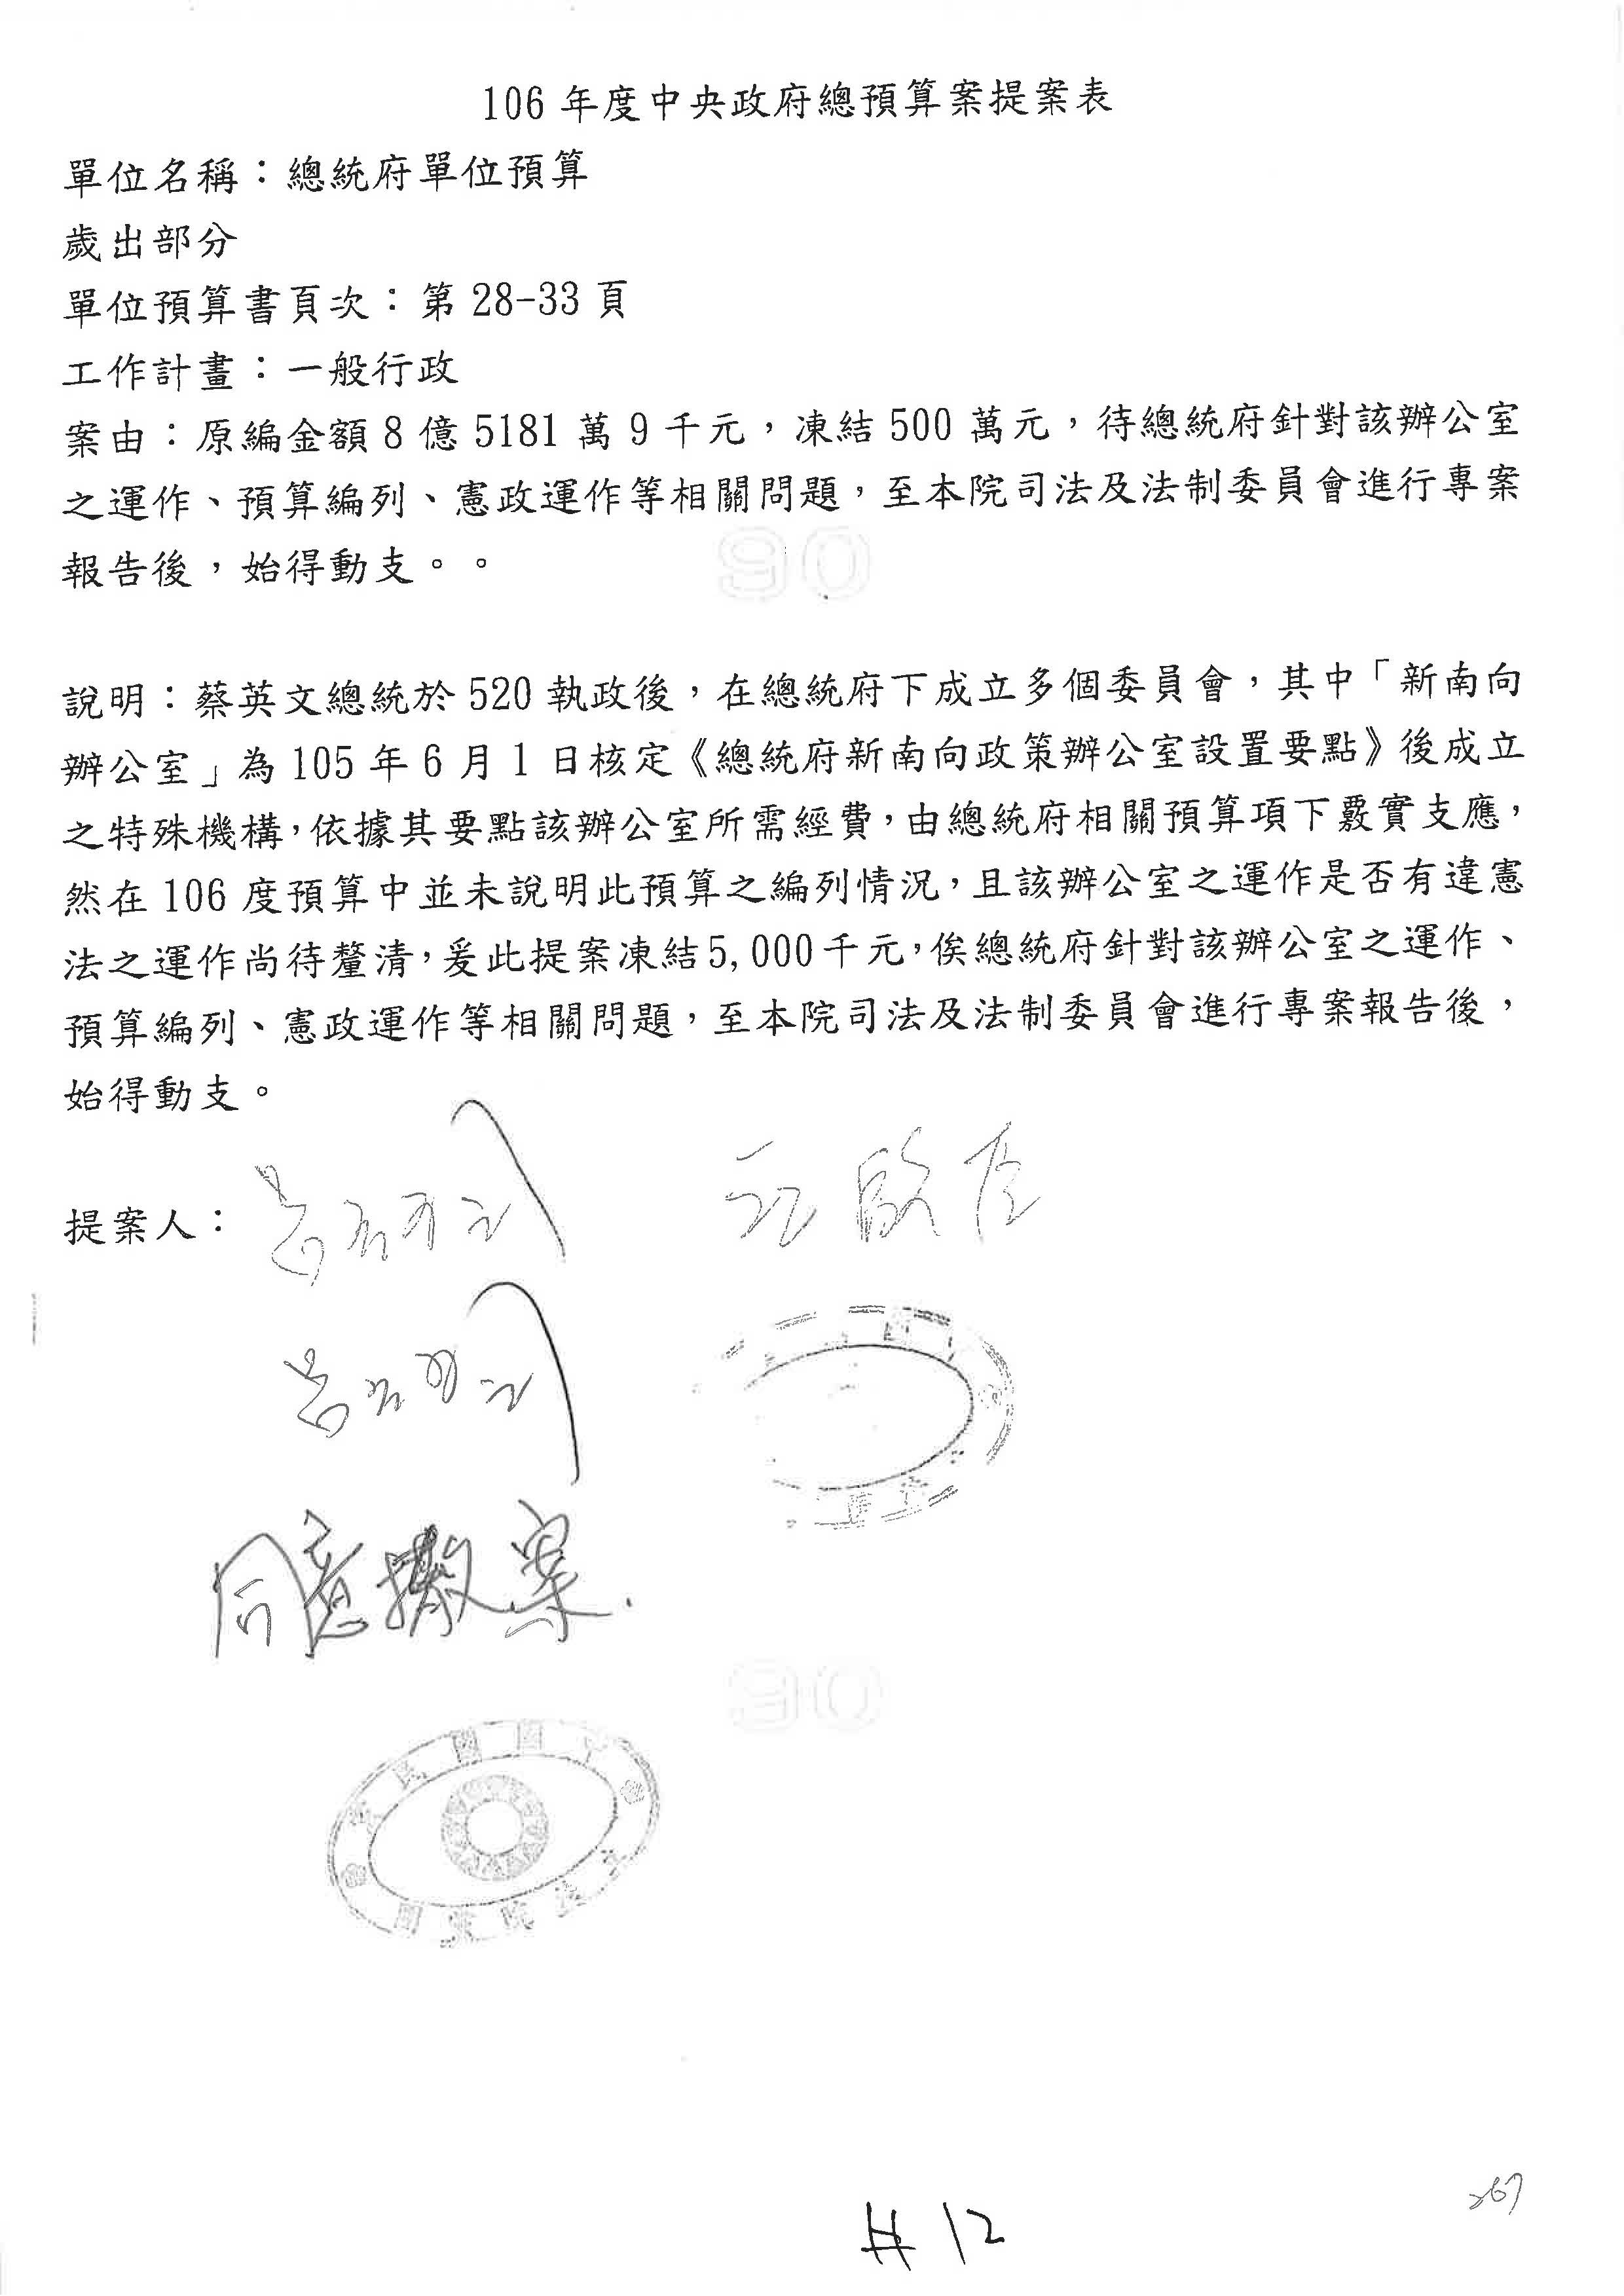 106 年度中央政府總預算案提案表
單位名稱：總統府單位預算
歲出部分
單位預算書頁次：第 28-33 頁
工作計畫：一般行政
案由：原編金額 8 億 5181 萬 9 千元，凍結 500 萬元，待總統府針對該辦公室
之運作、預算編列、憲政運作等相關問題，至本院司法及法制委員會進行專案
報告後，始得動支。。
90
說明：蔡英文總統於 520 執政後，在總統府下成立多個委員會，其中「新南向
辦公室」為 105 年 6 月 1 日核定《總統府新南向政策辦公室設置要點》後成立
之特殊機構，依據其要點該辦公室所需經費，由總統府相關預算項下覈實支應，
然在 106 度預算中並未說明此預算之編列情況，且該辦公室之運作是否有違憲
法之運作尚待釐清，爰此提案凍結 5,000 千元，俟總統府針對該辦公室之運作、
預算編列、憲政運作等相關問題，至本院司法及法制委員會進行專案報告後，
始得動支。
提案人：
江啟臣
同意撤案.
# 12
267